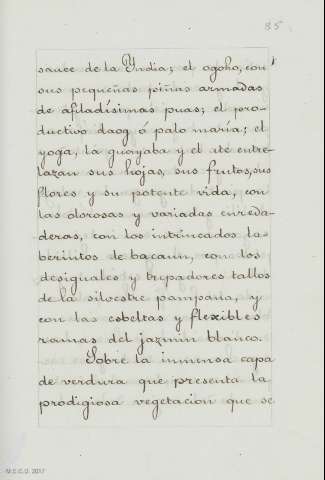 85
sauce de la Yndia; el ogoho, con
sus pequeñas piñas armadas
de afiladísimas puas; el pro-
ductivo daog ó palo maría; el
yoga, la guayaba y el ate entre-
lazan sus hojas, sus frutos, sus
flores y su potente vida, con
las olorosas y variadas enreda-
deras, con los intrincados la-
berintos de bacaun, con los
desiguales y trepadores tallos
de la silvestre pampana, y
con las esbeltas y flexibles
ramas del jazmin blanco.
Sobre la inmensa capa
de verdura que presenta la
prodigiosa vegetacion que se
M.E.C.D. 2017